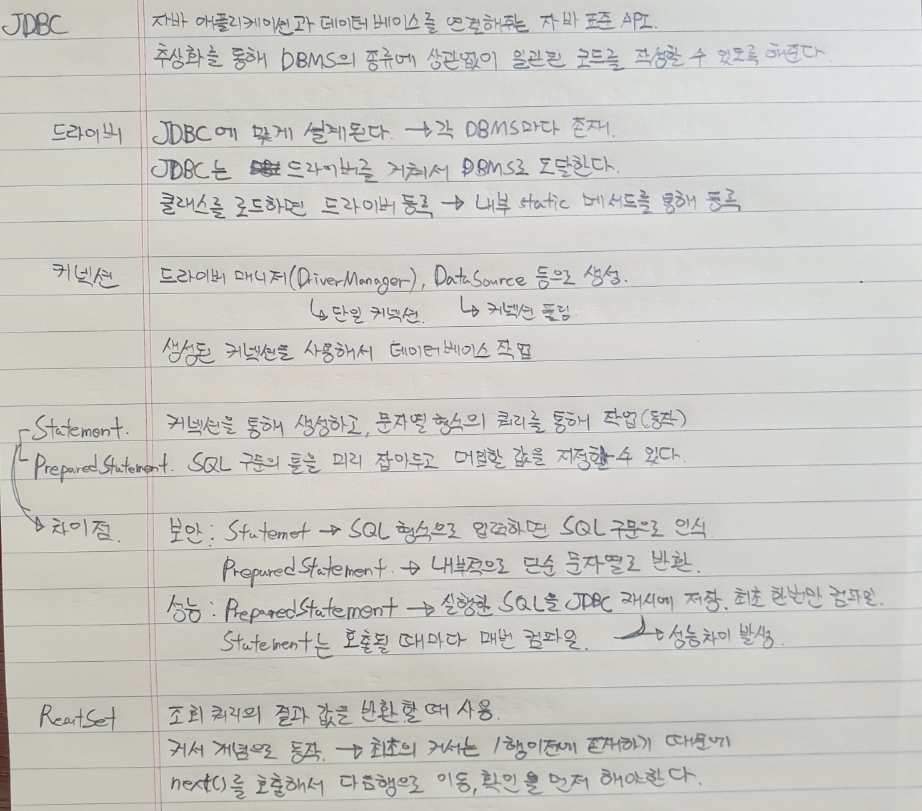 JDBC 자바 애플리케이션과 데이터베이스를 연결해주는 자바 표준 API.
추상화를 통해 DBMS의 종류에 상관없이 일관된 코드를 작성할 수 있도록 해준다
드라이버 JDBC에 맞게 설계된다. → 각 DBMS마다 존재.
JDBC는 드라이버를 거쳐서 DBMS로 도달한다.
클래스를 로드하면 드라이버 등록 → 내부 static 메서드를 통해 등록
커넥션 드라이버 매니저(DriverManager), DataSource 등으로 생성.
↳ 단일 커넥션. ↳ 커넥션 풀링.
생성된 커넥션을 사용해서 데이터베이스 작업
Statement. 커넥션을 통해 생성하고, 문자열 형식의 쿼리를 통해 작업(동작)
PreparedStatement. SQL 구문의 틀을 미리 잡아두고 대입할 값을 지정할 수 있다.
→ 차이점. 보안 : Statemet → SQL 형식으로 입력하면 SQL 구문으로 인식.
PreparedStatement. → 내부적으로 단순 문자열로 반환.
성능 : PreparedStatement → 실행한 SQL을 JDBC 캐시에 저장. 최초 한번만 컴파일.
Statement는 호출될 때마다 매번 컴파일. → 성능차이 발생.
조회 쿼리의 결과 값을 반환할 때 사용.
커서 개념으로 동작. → 최초의 커서는 1행이전에 존재하기 때문에
next()를 호출해서 다음행으로 이동, 확인을 먼저 해야한다.